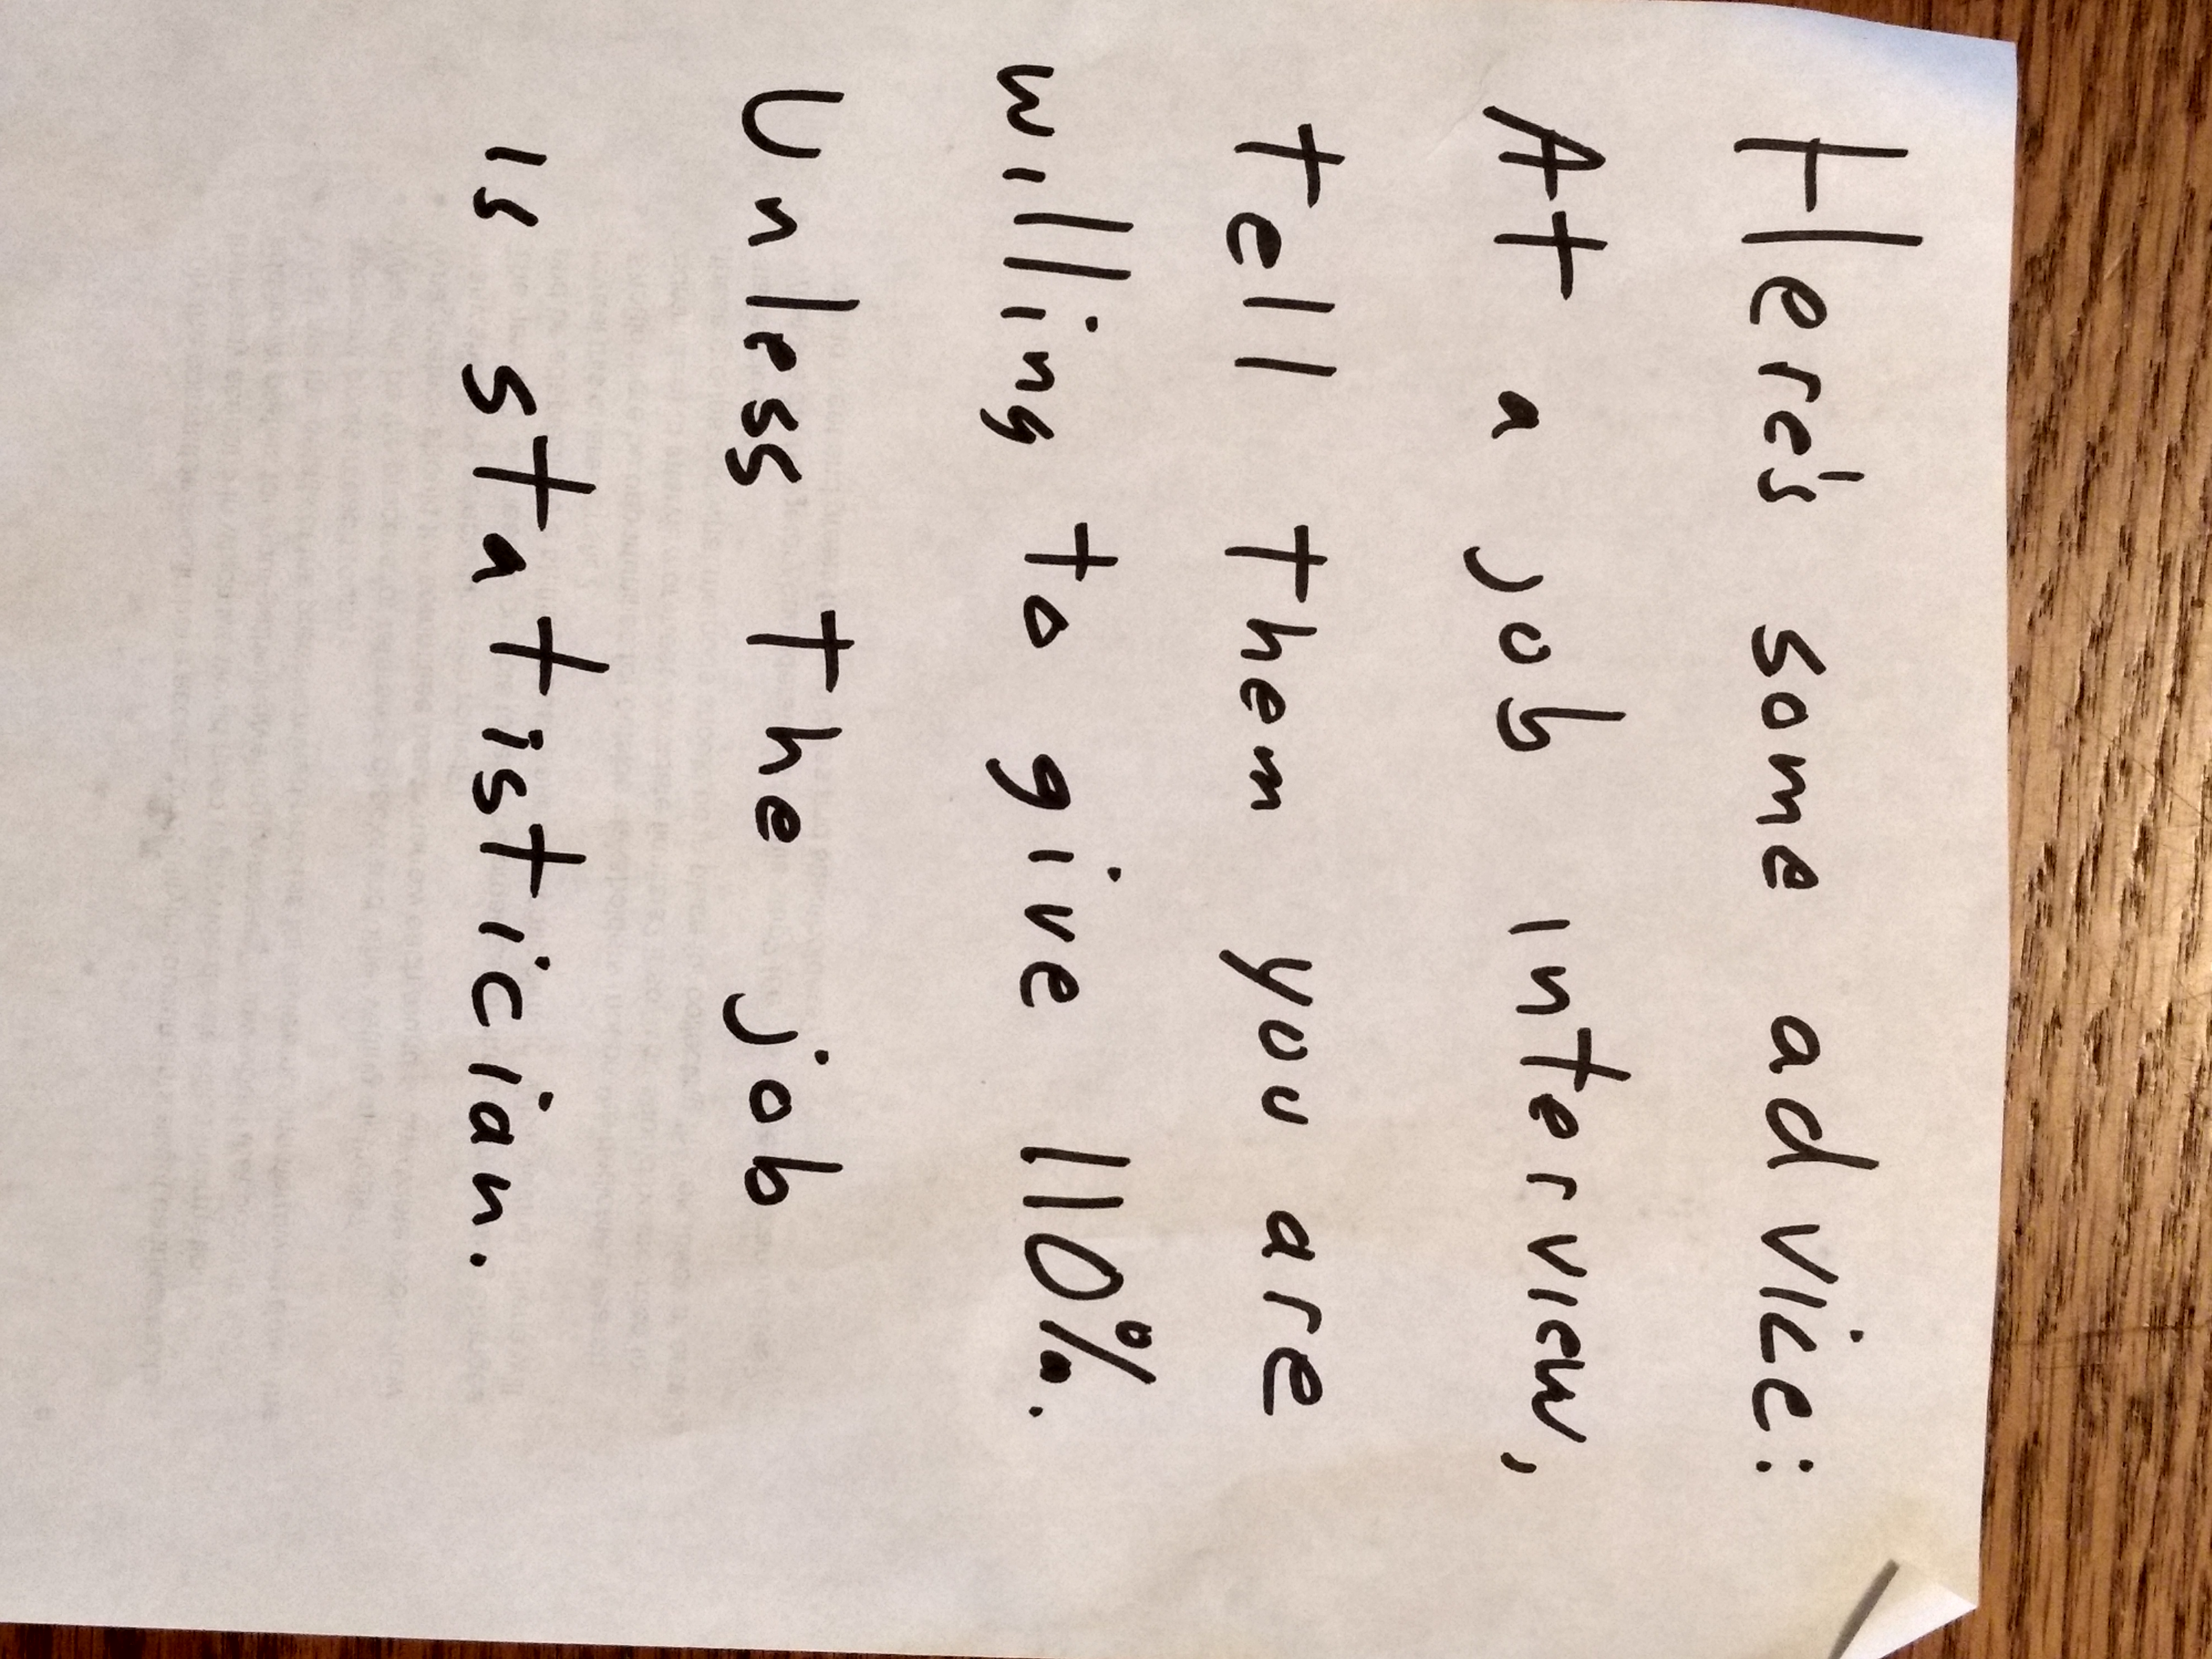 Here's some advice:
At a job interview,
tell them you are
willing to give 110%.
Unless the job
is statistician.